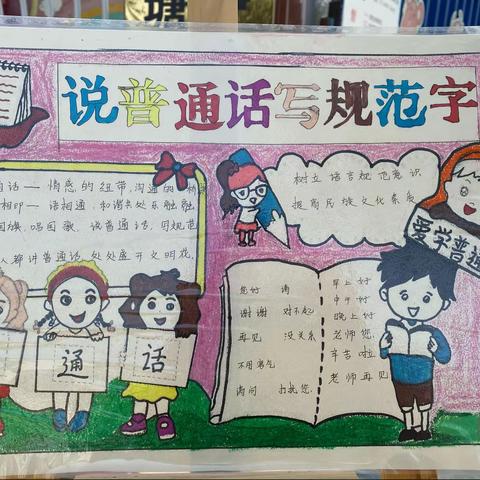 塘
说普通话写规范字
话——情感的纽带,沟通的桥
相印——语相通,和谐共处乐融融
国旗,唱国歌,说普通话,写规范
人人都讲普通话,处处盛开文明花,
树立语言规范意识
提高民族文化素质
爱学普通
您好 请
谢谢 对不起
再见 没关系
不用客气
请问 打扰您
早上好
中午好
晚上好
老师您
辛苦啦
老师再见
通
话